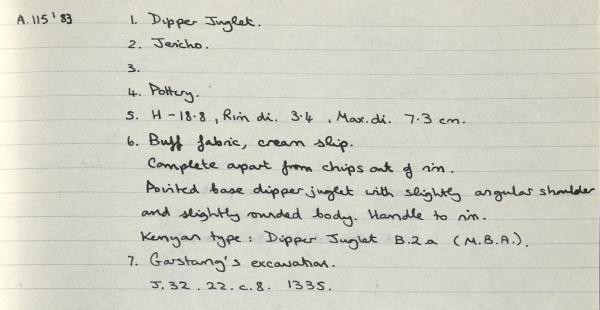 A.115'83 1. Dipper Juglet.
2. Jericho.
3.
4. Pottery.
5. H - 18.8, Rim di. 3.4, Max. di. 7.3 cm.
6. Buff fabric, cream slip.
Complete apart from chips out of rim.
Pointed base dipper juglet with slightly angular shoulder
and slightly rounded body. Handle to rim.
Kenyan type: Dipper Juglet B.2a (M.B.A.).
7. Garstang's excavation.
J.32.22.c.8. 1335.